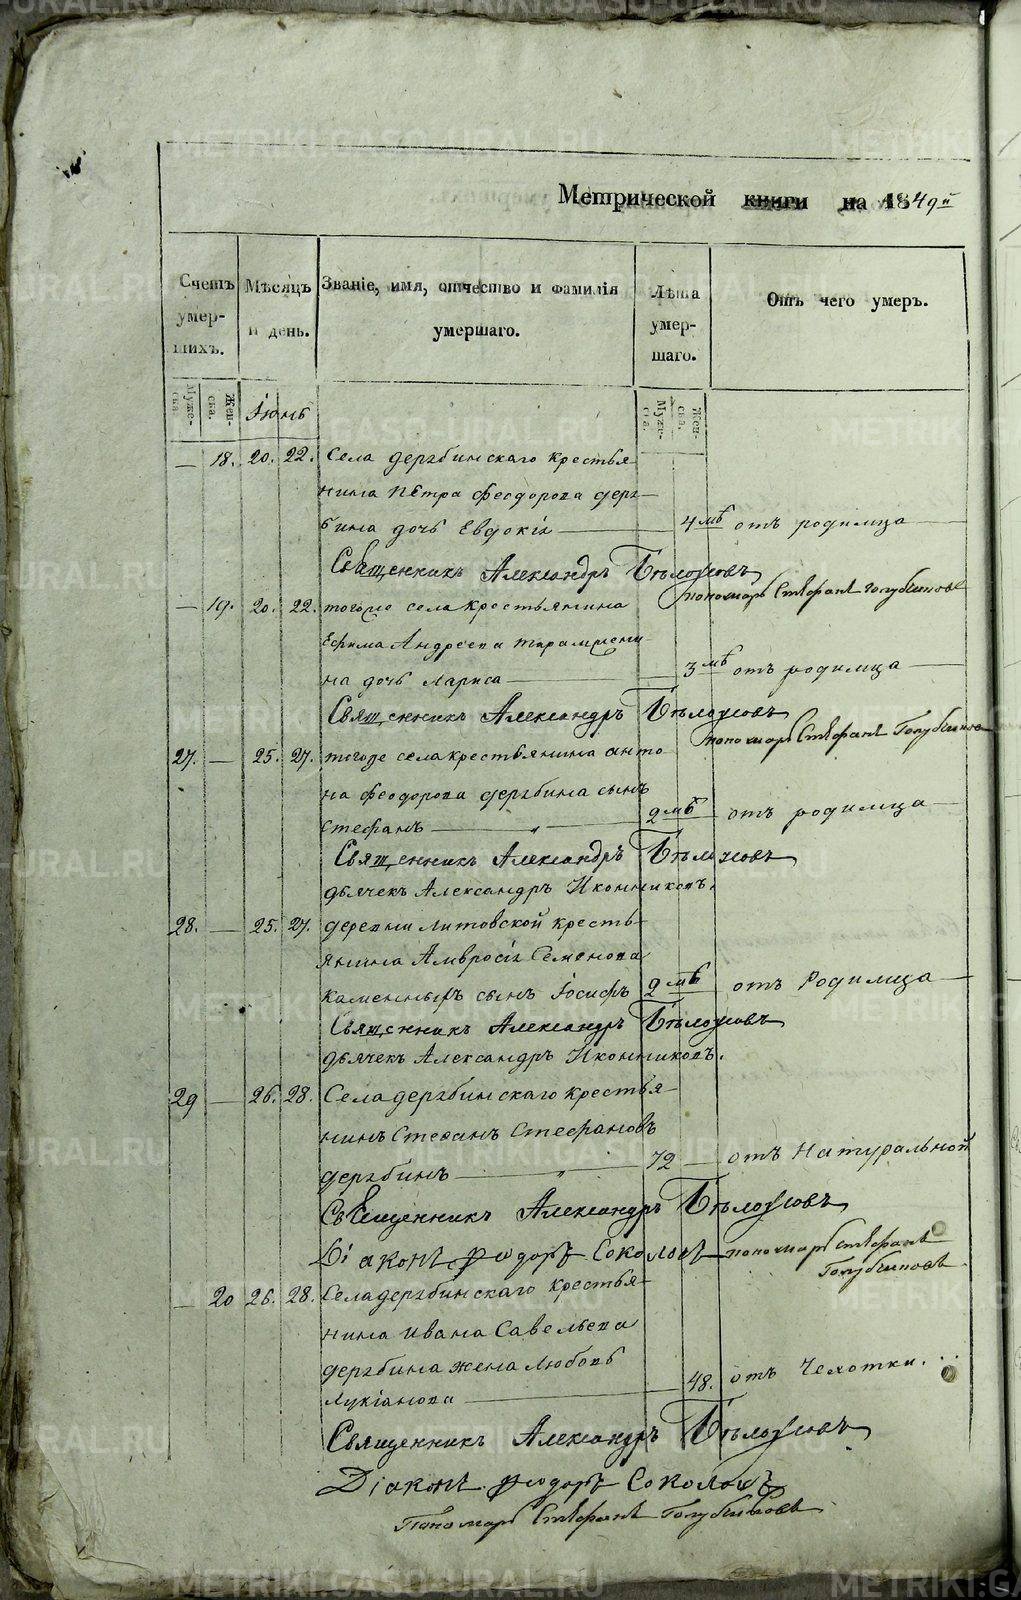 Метрической книги на 1849й
Счетъ умер-шихъ.
Мѣсяцъ и день.
Званіе, имя, отчество и фамилія умершаго.
Лѣта умер-шаго.
Отъ чего умеръ.
Муже-ска.
Жен-ска.
Іюнь
Муже-ска.
Жен-ска.
— 18. 20. 22. Села дерябинскаго крестья
нина Петра Феодорова деря
бина дочь Евдокія 4 мѣ отъ родимца
Священникъ Александръ Бѣлоусовъ
пономарь Стефанъ Голубчиковъ
— 19. 20. 22. тогоже села крестьянина
Ефима Андреева
на дочь Лариса 3 мѣ отъ родимца
Священникъ Александръ Бѣлоусовъ
пономарь Стефанъ Голубчиковъ
27. — 25. 27. тогоже села крестьянина анто
на Феодорова дерябина сынъ
Стефанъ „ 2 мѣ отъ родимца
Священникъ Александръ Бѣлоусовъ
дьячекъ Александръ Иконниковъ.
28. — 25. 27. деревни литовской кресть
янина Амвросія Семенова
каменныхъ сынъ Іосифъ 2 мѣ отъ Родимца
Священникъ Александръ Бѣлоусовъ
дьячекъ Александръ Иконниковъ.
29 — 26. 28. Села дерябинскаго крестья
нинъ Стефанъ Стефановъ
дерябинъ „ 72 — отъ Натуральной
Священникъ Александръ Бѣлоусовъ
Діаконъ Феодоръ Соколовъ пономарь Стефанъ
Голубчиковъ
— 20 26. 28. Села дерябинскаго крестья
нина Ивана Савельева
дерябина жена Любовь
Лукіанова 48. отъ Чехотки...
Священникъ Александръ Бѣлоусовъ
Діаконъ Феодоръ Соколовъ
Пономарь Стефанъ Голубчиковъ
METRIKI.GASO-URAL.RU